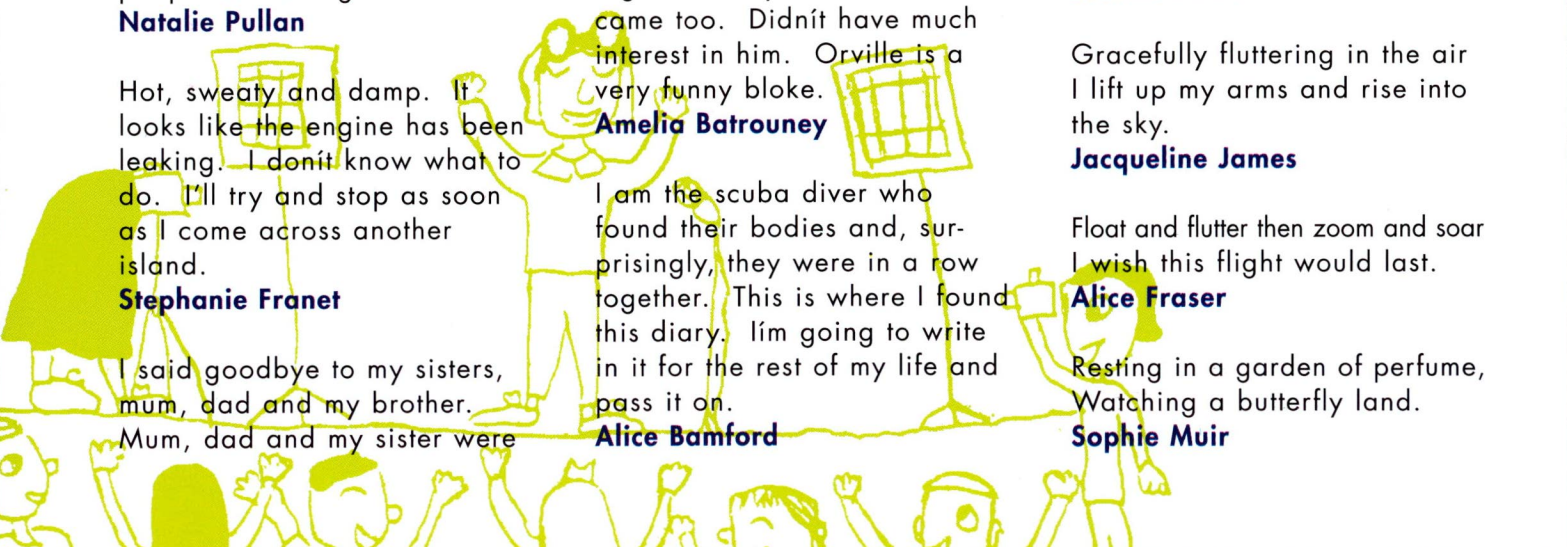 Natalie Pullan
Hot, sweaty and damp. It
looks like the engine has been
leaking. I donít know what to
do. I'll try and stop as soon
as I come across another
island.
Stephanie Franet
I said goodbye to my sisters,
mum, dad and my brother.
Mum, dad and my sister were
came too. Didnít have much
interest in him. Orville is a
very funny bloke.
Amelia Batrouney
I am the scuba diver who
found their bodies and, sur-
prisingly, they were in a row
together. This is where I found
this diary. Iím going to write
in it for the rest of my life and
pass it on.
Alice Bamford
Gracefully fluttering in the air
I lift up my arms and rise into
the sky.
Jacqueline James
Float and flutter then zoom and soar
I wish this flight would last.
Alice Fraser
Resting in a garden of perfume,
Watching a butterfly land.
Sophie Muir